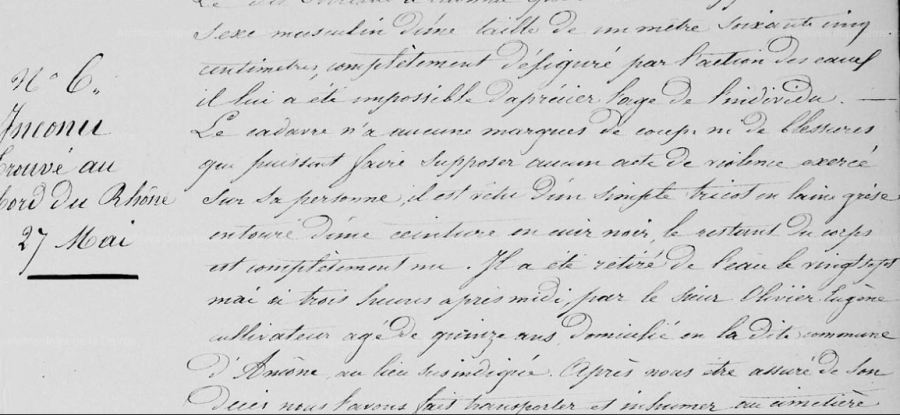 N° 6.
Inconu
trouvé au
bord du Rhône
27 Mai
sexe masculin d'une taille de un mètre soixante cinq
centimetres, complètement défiguré par l'action des eaux
il lui a été impossible d'aprécier l'age de l'individu.
Le cadavre n'a aucune marques de coup, ni de blessures
qui puissent faire supposer aucun acte de violence exercé
sur sa personne, il est vétu d'un simple tricot en laine grise
entouré d'une ceinture en cuir noir, le restant du corps
est complètement nu. Il a été rétiré de l'eau le vingt sept
mai à trois heures après midi, par le sieur Olivier Eugène
cultivateur agé de quinze ans domicilié en la dite commune
d'Ancône au lieu susindiqué. Après nous être assuré de son
décès nous l'avons fait transporter et inhumer au cimetière